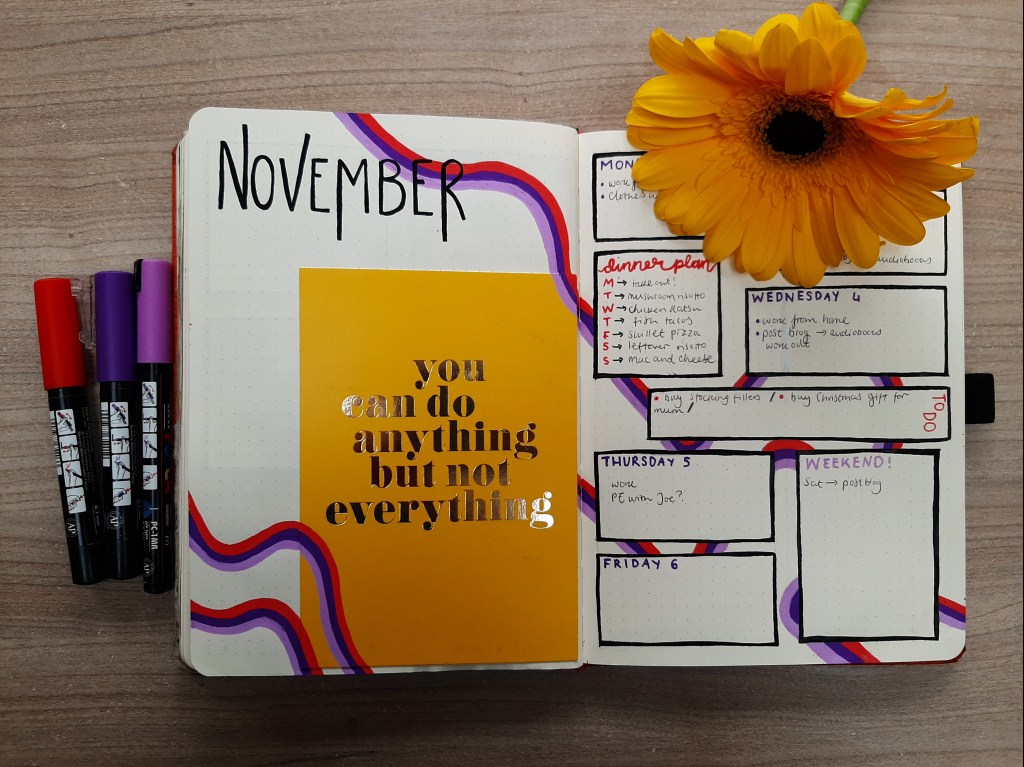 NOVEMBER
you
can do
anything
but not
everything
MON
• work f
• clothes
audiobooks
dinner plan
M → take out!
T → mushroom risotto
W → chicken katsu
T → fish tacos
F → skillet pizza
S → leftover risotto
S → mac and cheese
WEDNESDAY 4
• work from home
• post blog → audiobooks
work out
• buy stocking fillers / • buy Christmas gift for
mum /
TO DO
THURSDAY 5
work
PE with Joe?
WEEKEND!
Sat → post blog
FRIDAY 6
PC-1MR